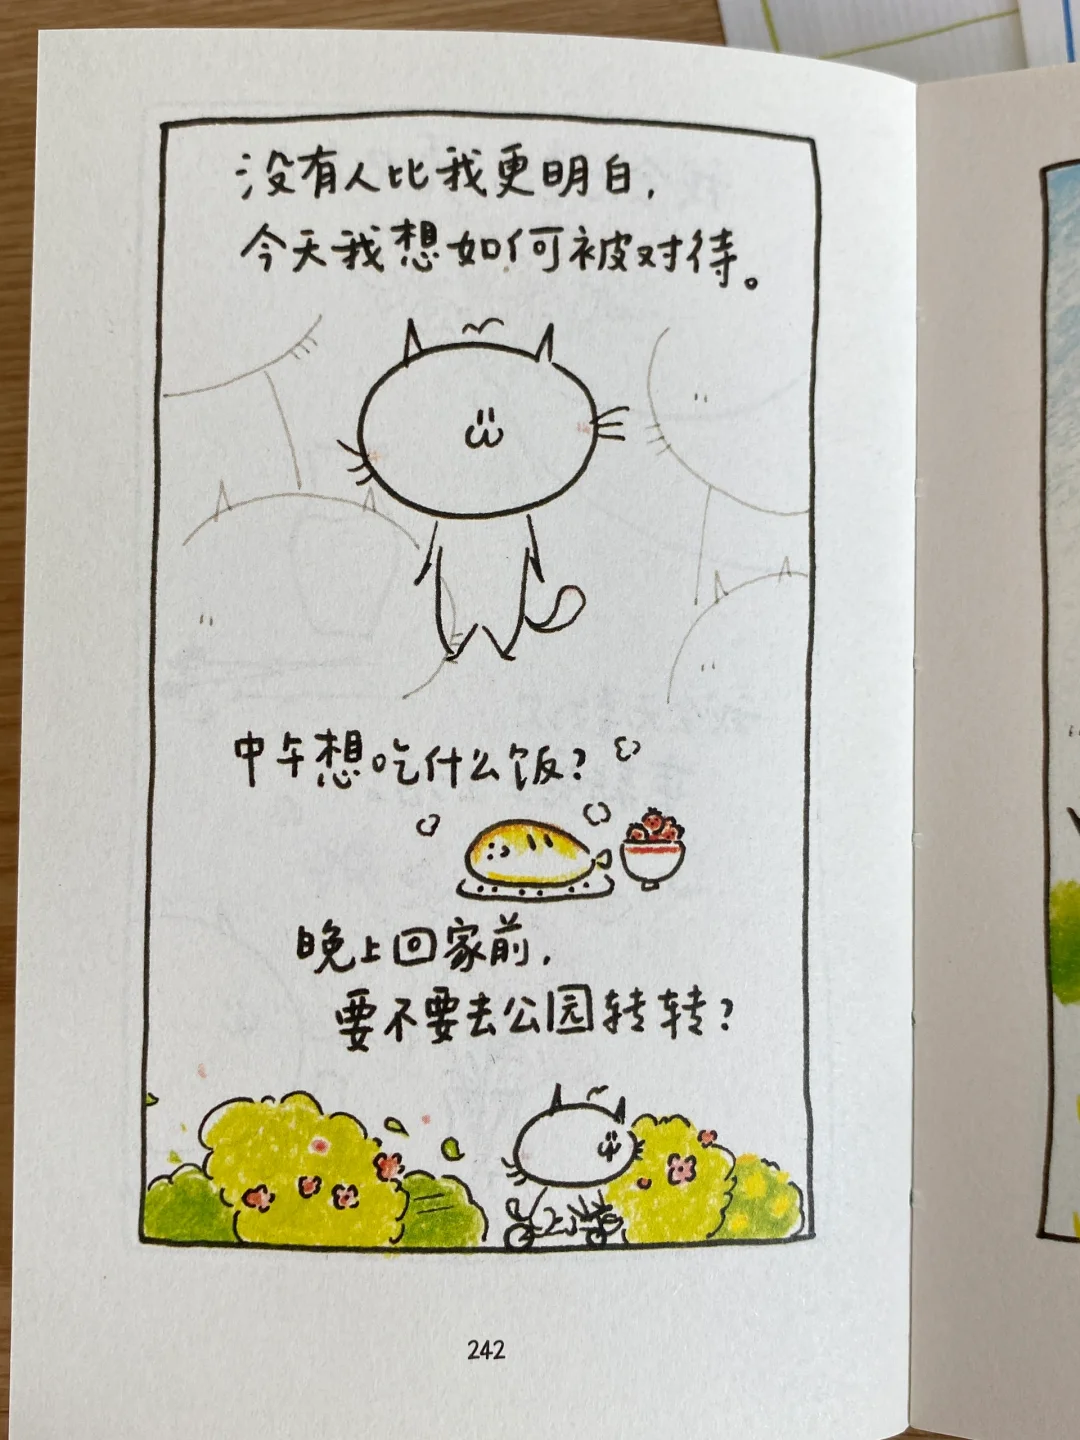 没有人比我更明白,
今天我想如何被对待。
中午想吃什么饭?
晚上回家前,
要不要去公园转转?
242